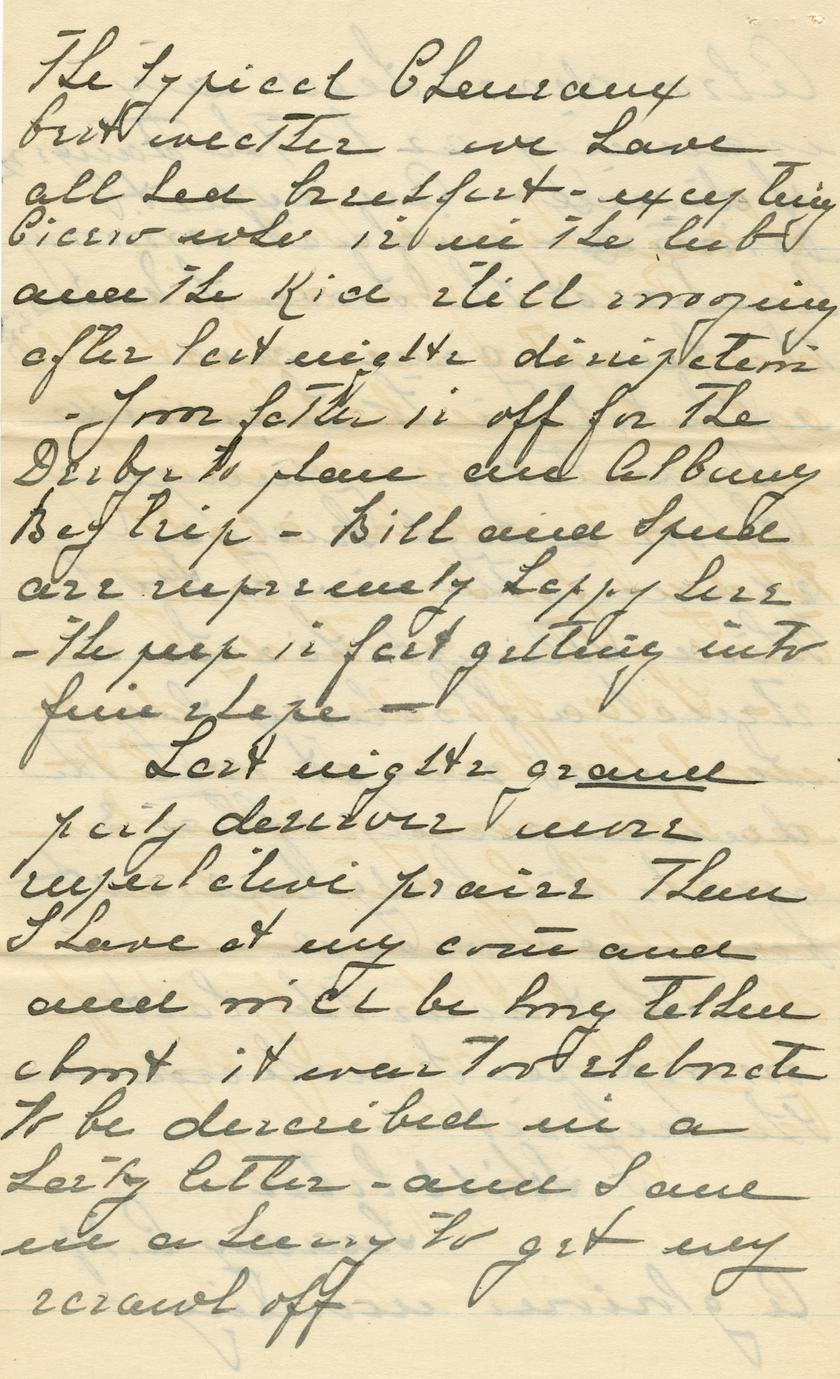 The typical Cheneaux
best weather we have
all had breakfast - excepting
Cicero who is in the tub
and the Kid still snoozing
after last nights dissipation
- Your father is off for the
Derbys to plan an Albany
Bay trip - Bill and Spud
are supremely happy here
- The peep is fast getting into
fine shape -
Last nights grand
party deserves more
superlative praise than
I have at my comand
and will be long talked
about it was too elaborate
to be described in a
hasty letter - and I am
in a hurry to get my
scrawl off